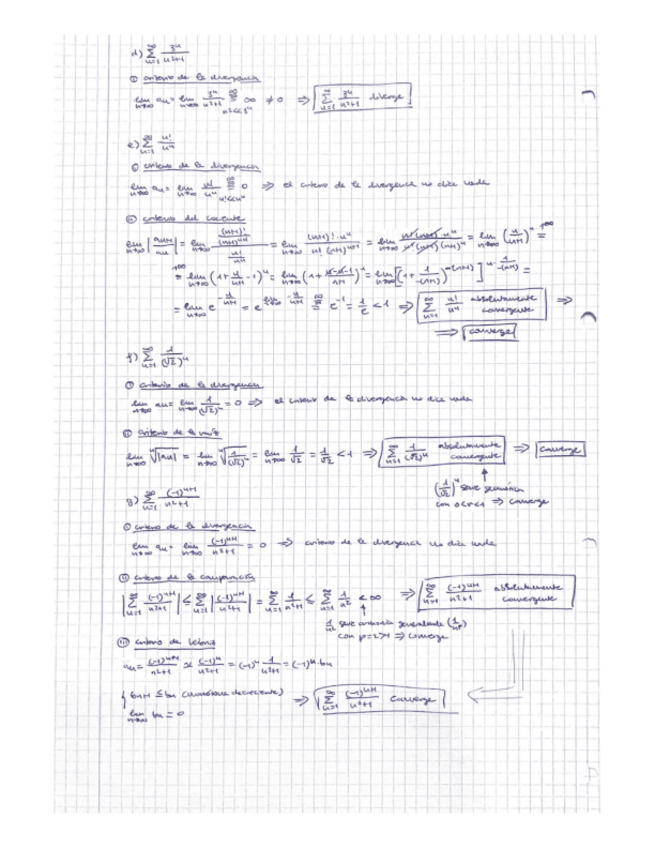 d) ∑_{n=1}^{∞} 3^n/(n²+1)
① criterio de la divergencia
lim_{n→∞} a_n = lim_{n→∞} 3^n/(n²+1) = ∞ ≠ 0 ⟹ ∑_{n=1}^{∞} 3^n/(n²+1) diverge
n²<<3^n
e) ∑_{n=1}^{∞} n!/n^n
① criterio de la divergencia
lim_{n→∞} a_n = lim_{n→∞} n!/n^n = 0 ⟹ el criterio de la divergencia no dice nada
n!<<n^n
② criterio del cociente
lim_{n→∞} |a_{n+1}/a_n| = lim_{n→∞} ((n+1)!/(n+1)^{n+1})/(n!/n^n) = lim_{n→∞} (n+1)!·n^n/(n!(n+1)^{n+1}) = lim_{n→∞} n!(n+1)·n^n/(n!(n+1)(n+1)^n) = lim_{n→∞} (n/(n+1))^n =
= lim_{n→∞} (1+n/(n+1)-1)^n = lim_{n→∞} (1+(n-n-1)/(n+1))^n = lim_{n→∞} [(1+1/(-(n+1)))^{-(n+1)}]^{n·1/(-(n+1))} =
= lim_{n→∞} e^{-n/(n+1)} = e^{lim_{n→∞} -n/(n+1)} = e^{-1} = 1/e < 1 ⟹ ∑_{n=1}^{∞} n!/n^n absolutamente convergente ⟹
⟹ converge
f) ∑_{n=1}^{∞} 1/(√2)^n
① criterio de la divergencia
lim_{n→∞} a_n = lim_{n→∞} 1/(√2)^n = 0 ⟹ el criterio de la divergencia no dice nada
② criterio de la raíz
lim_{n→∞} ⁿ√|a_n| = lim_{n→∞} ⁿ√(1/(√2)^n) = lim_{n→∞} 1/√2 = 1/√2 < 1 ⟹ ∑_{n=1}^{∞} 1/(√2)^n absolutamente convergente ⟹ converge
(1/√2)^n serie geométrica
con 0<r<1 ⟹ converge
g) ∑_{n=1}^{∞} (-1)^{n+1}/(n²+1)
① criterio de la divergencia
lim_{n→∞} a_n = lim_{n→∞} (-1)^{n+1}/(n²+1) = 0 ⟹ criterio de la divergencia no dice nada
② criterio de la comparación
|∑_{n=1}^{∞} (-1)^{n+1}/(n²+1)| ≤ ∑_{n=1}^{∞} |(-1)^{n+1}/(n²+1)| = ∑_{n=1}^{∞} 1/(n²+1) ≤ ∑_{n=1}^{∞} 1/n² < ∞ ⟹ ∑_{n=1}^{∞} (-1)^{n+1}/(n²+1) absolutamente convergente
1/n² serie armónica generalizada (1/n^p)
con p=2>1 ⟹ converge
③ criterio de Leibniz
a_n = (-1)^{n+1}/(n²+1) ≈ (-1)^n/(n²+1) = (-1)^n 1/(n²+1) = (-1)^n·b_n
{ b_{n+1} ≤ b_n (monótona decreciente)
lim_{n→∞} b_n = 0 ⟹ ∑_{n=1}^{∞} (-1)^{n+1}/(n²+1) converge